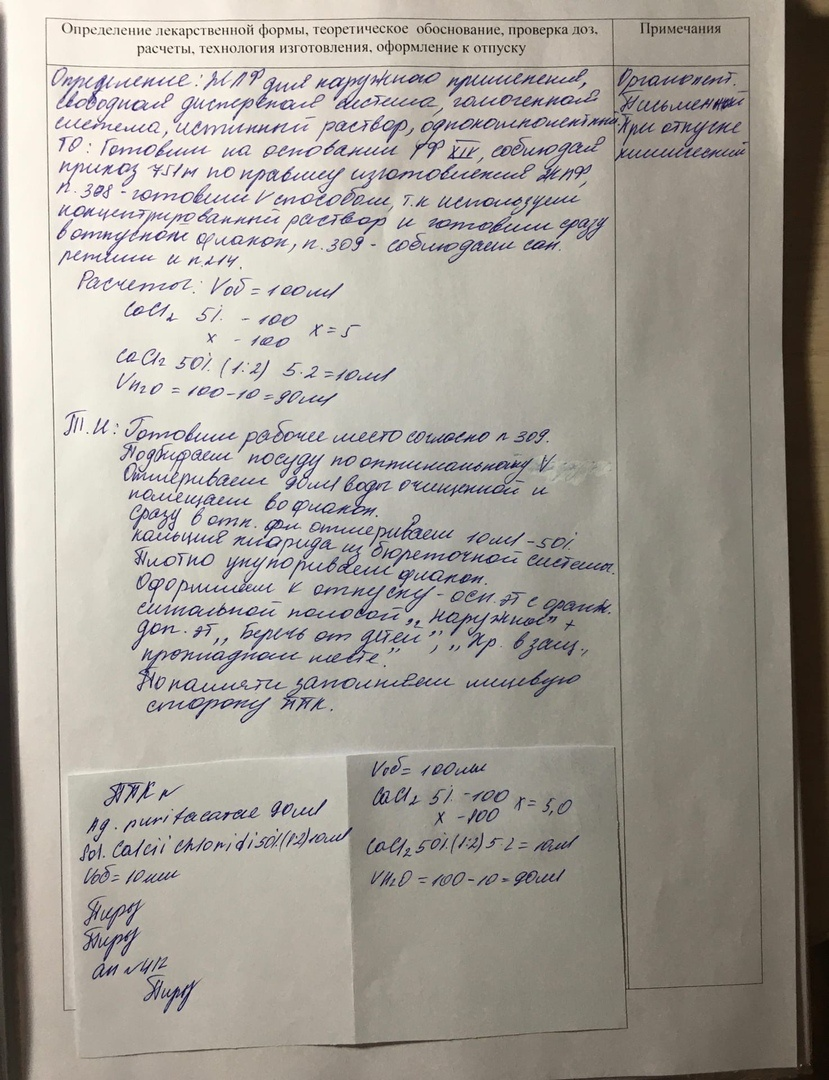 Определение лекарственной формы, теоретическое обоснование, проверка доз,
расчеты, технология изготовления, оформление к отпуску
Примечания
Определение: ЖЛФ для наружного применения,
свободная дисперсная система, гомогенная
система, истинный раствор, однокомпонентный.
ТО: Готовим на основании ГФ XIV, соблюдая
приказ 751н по правилу изготовления ЖЛФ,
п. 308 - готовим V способом, т.к используем
концентрированный раствор и готовим сразу
в отпускной флакон, п. 309 - соблюдаем сан.
режим и п.214.
Органолепт.
Письменный
При отпуске
химический
Расчеты: Vоб = 100мл
CaCl2 5% - 100
x - 100 x = 5
CaCl2 50% (1:2) 5·2 = 10мл
VH2O = 100-10 = 90мл
Т.И: Готовим рабочее место согласно п 309.
Подбираем посуду по оптимальному V
Отмериваем 90мл воды очищенной и
помещаем во флакон.
Сразу в отп. фл отмериваем 10мл - 50%
кальция хлорида из бюреточной системы.
Плотно укупориваем флакон.
Оформляем к отпуску - осн. эт с оранж.
сигнальной полосой „Наружное" +
доп. эт „Беречь от детей", „Хр. в защ.,
прохладном месте."
По памяти заполняем лицевую
сторону ППК.
ППК №
Aq. purificatae 90мл
Sol. Calcii chloridi 50% (1:2) 10мл
Vоб = 10мл
ап № 412
Vоб = 100мл
CaCl2 5% - 100
x - 100 x = 5,0
CaCl2 50% (1:2) 5·2 = 10мл
VH2O = 100-10 = 90мл